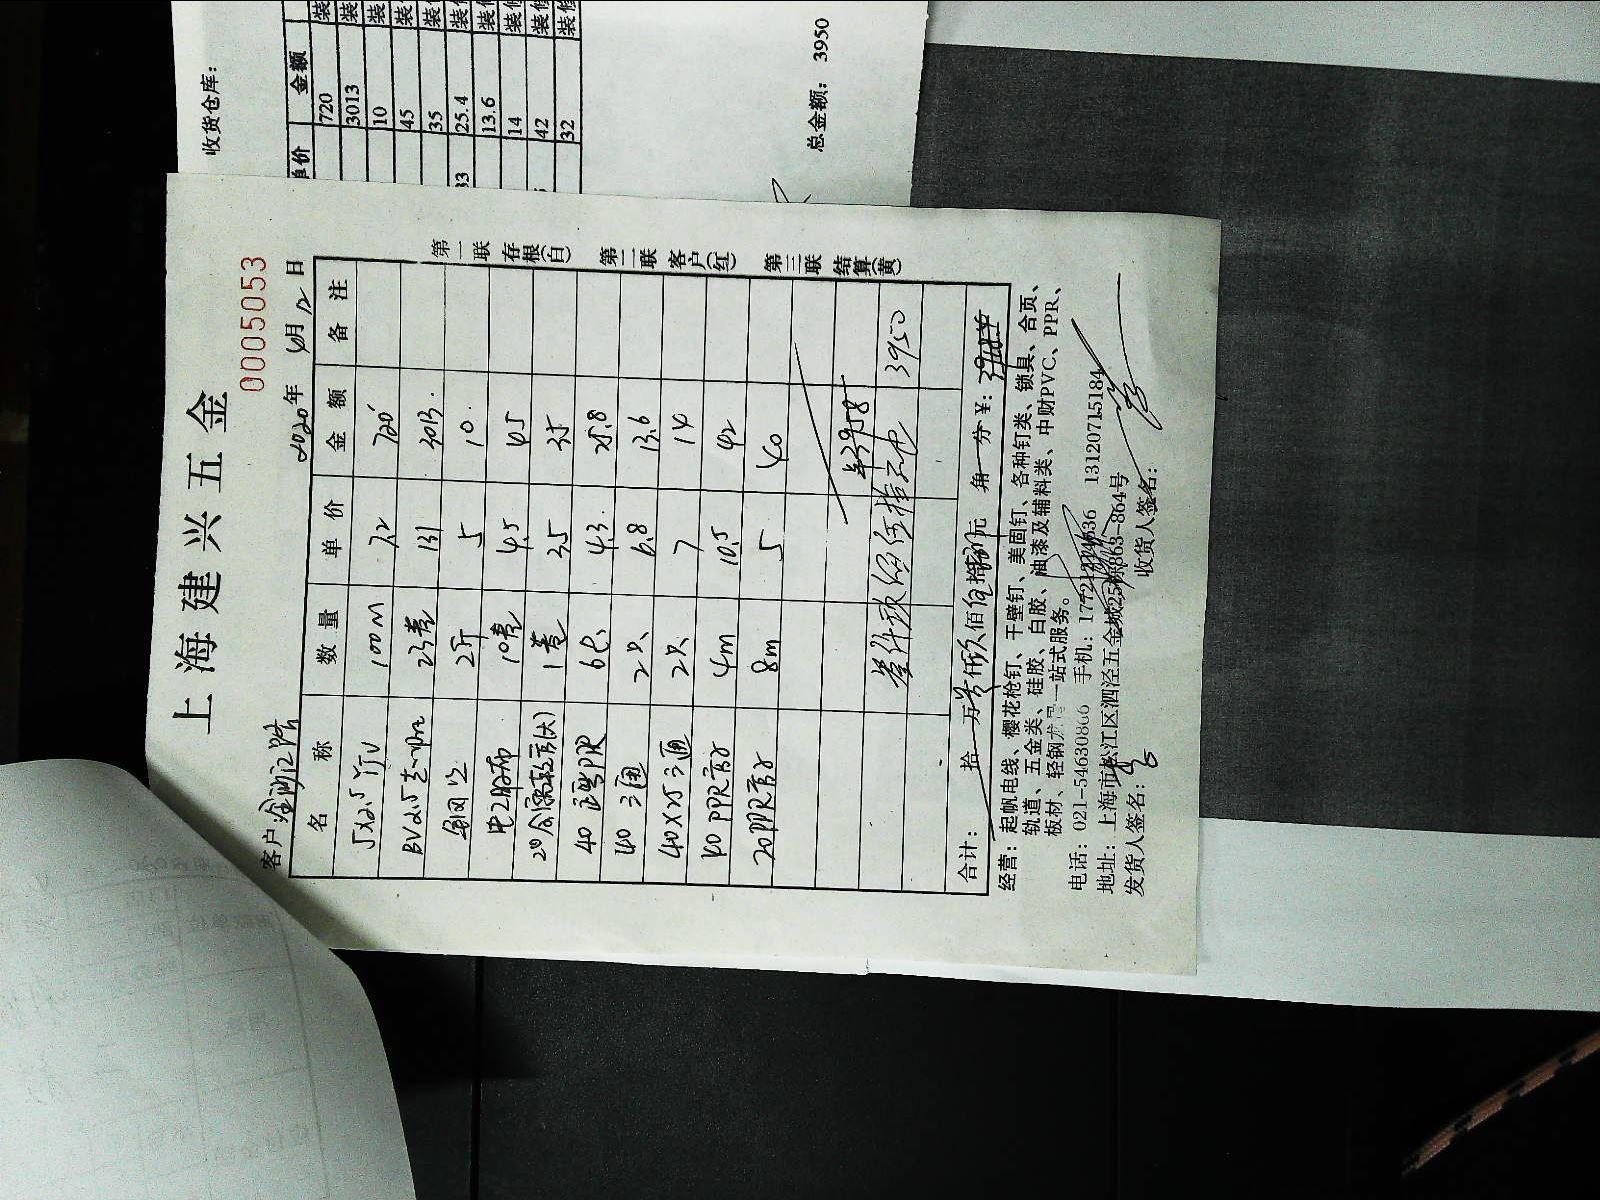 收货仓库：
单价 金额
720 装
3013 装
10 装
45 装
35 装
33 25.4 装
13.6 装修
14 装修
42 装修
32 装修
总金额： 3950
上海建兴五金
0005053
客户
2020年 6月 12日
名称 数量 单价 金额 备注
5X2.5 100M 7.2 720
BV2.5 23卷 131 3013
2斤 5 10
电工胶布 10卷 4.5 45
1卷 35 35
40 PPR 6只 4.3 25.8
40 三通 2只 6.8 13.6
40X25三通 2只 7 14
40 PPR管 4m 10.5 42
20PPR管 8m 5 40
¥3958
3950
合计： 拾 万 仟 玖佰 元 角 分 ¥：
第一联 存根(白)
第二联 客户(红)
第三联 结算(黄)
经营：起帆电线、樱花枪钉、干壁钉、美固钉、各种钉类、锁具、合页、
轨道、五金类、硅胶、白胶、油漆及辅料类、中财PVC、PPR、
板材、轻钢龙骨一站式服务。
电话：021-54630866 手机： 13120715184
地址：上海市松江区泗泾五金城25栋863-864号
发货人签名： 收货人签名：